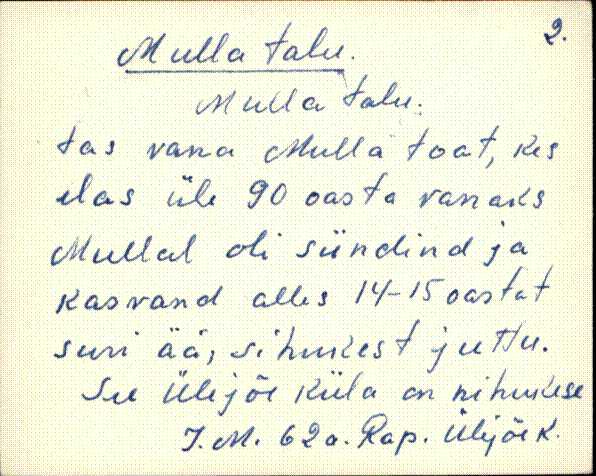 2.
Mulla talu.
Mulla talu.
tas vana Mulla toat, kes
elas üle 90 oasta vanaks
Mullal oli sündind ja
kasvand alles 14-15 oastat
suri ää, sihukest juttu.
See Ülijõe küla on nihukese
J. M. 62a. Rap. Ülijõe k.